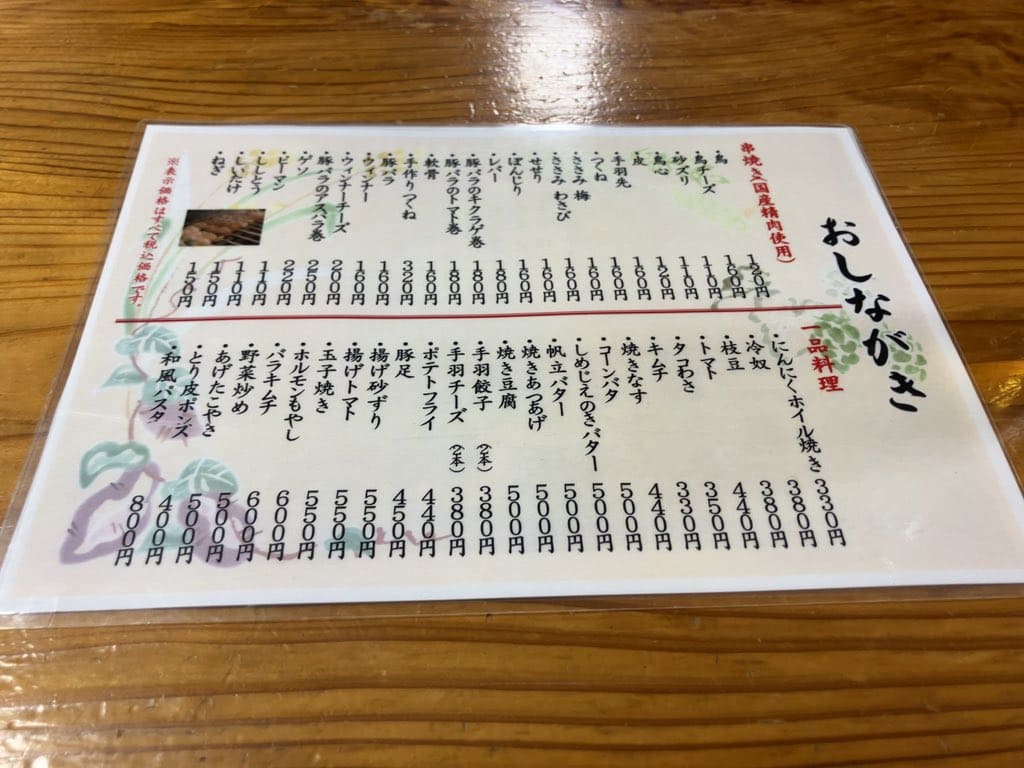 おしながき
串焼き(国産精肉使用)
・鳥 120円
・鳥チーズ 160円
・砂ズリ 110円
・鳥心 110円
・皮 120円
・手羽先 160円
・つくね 160円
・ささみ 梅 160円
・ささみ わさび 160円
・せせり 160円
・ぼんじり 160円
・レバー 180円
・豚バラのキクラゲ巻 180円
・豚バラのトマト巻 180円
・軟骨 160円
・手作りつくね 320円
・豚バラ 160円
・ウィンナー 160円
・ウィンナーチーズ 200円
・豚バラのアスパラ巻 250円
・ゲソ 220円
・ピーマン 110円
・ししとう 110円
・しいたけ 150円
・ねぎ 150円
※表示価格はすべて税込価格です。
一品料理
・にんにくホイル焼き 330円
・冷奴 380円
・枝豆 380円
・トマト 440円
・タコわさ 350円
・キムチ 330円
・焼きなす 440円
・コーンバタ 500円
・しめじえのきバター 500円
・帆立バター 500円
・焼きあつあげ 500円
・焼き豆腐 500円
・手羽餃子(2本) 380円
・手羽チーズ(2本) 380円
・ポテトフライ 440円
・豚足 450円
・揚げ砂ずり 550円
・揚げトマト 550円
・玉子焼き 550円
・ホルモンもやし 600円
・バラキムチ 600円
・野菜炒め 500円
・あげたこやさ 500円
・とり皮ポンズ 400円
・和風パスタ 800円